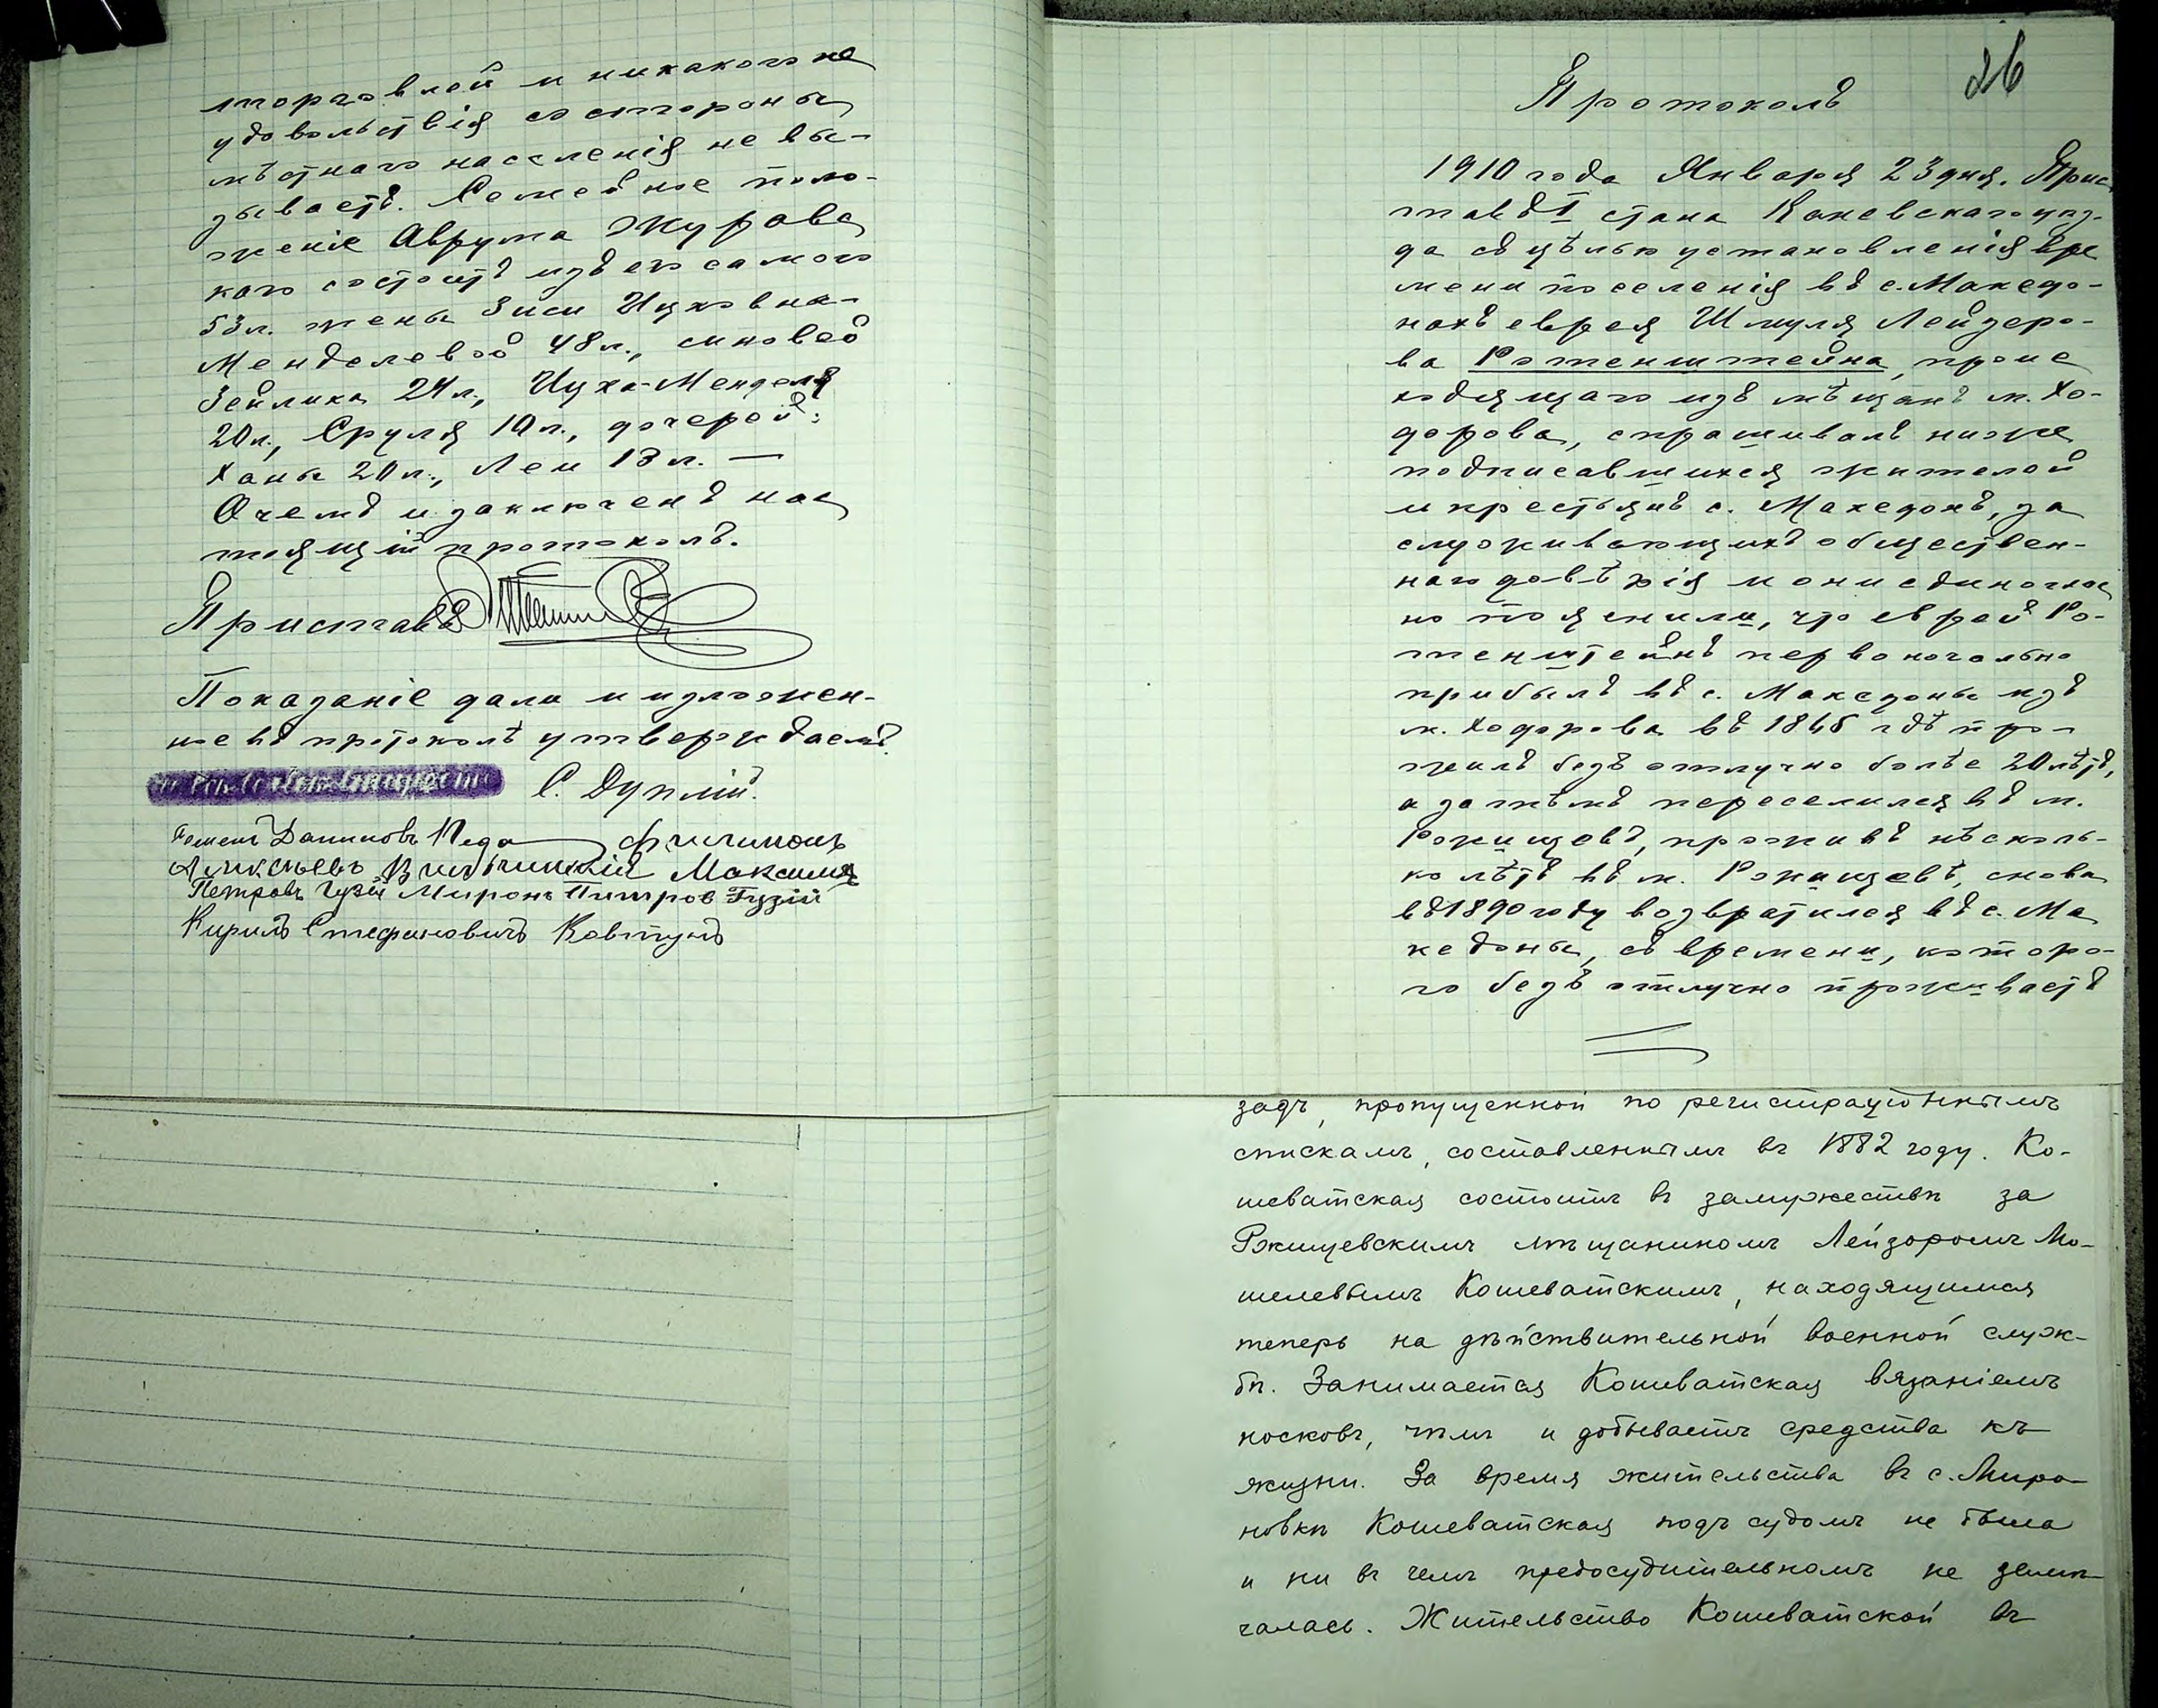 торговлей и никакого не
удовольствія со стороны
мѣстнаго населенія не вы-
зываетъ. Семейное поло-
женіе Аврума Журавс
каго состоитъ изъ его самого
53 л. жены Зиси Ицковна-
Менделевой 48 л., сыновей
Зейлика 24 л., Ицка-Менделя
20 л., Сруля 10 л., дочерей:
Ханы 20 л., Леи 13 л. —
О чемъ и заключенъ нас
тоящій протоколъ.
Приставъ
Показаніе дали и изложен-
ное въ протоколѣ утверждаемъ.
С. Дуплій.
Даниловъ Педа Филимонъ
Алексѣевъ Вильчинскій Максимъ
Петровъ Гузій Миронъ Питров Гузій
Кирилъ Стефановичъ Ковтунъ
26
Протоколъ
1910 года Января 23 дня. Прис
тавъ I стана Каневскаго уѣз-
да съ цѣлью установленія вре
мени поселенія въ с. Македо-
нахъ еврея Шмуля Лейзеро-
ва Ротенштейна, проис
ходящаго изъ мѣщанъ м. Хо-
дорова, спрашивалъ ниже
подписавшихся жителей
и крестьянъ с. Македонъ, за
служивающихъ обществен-
наго довѣрія и они единоглас
но пояснили, что еврей Ро-
тенштейнъ первоначально
прибылъ въ с. Македоны изъ
м. Ходорова въ 1865 гдѣ про-
жилъ безъ отлучно болѣе 20 лѣтъ,
а затѣмъ переселился въ м.
Ржищевъ, проживъ нѣсколь-
ко лѣтъ въ м. Ржищевѣ, снова
въ 1890 году возвратился въ с. Ма
кедоны, съ времени, которо-
го безъ отлучно проживаетъ
задъ, пропущенной по регистраціоннымъ
спискамъ, составленнымъ въ 1882 году. Ко-
шеватская состоитъ въ замужествѣ за
Ржищевскимъ мѣщаниномъ Лейзоромъ Мо-
шелевымъ Кошеватскимъ, находящимся
теперь на дѣйствительной военной служ-
бѣ. Занимается Кошеватская вязаніемъ
носковъ, чѣмъ и добываетъ средства къ
жизни. За время жительства въ с. Миро-
новкѣ Кошеватская подъ судомъ не была
и ни въ чемъ предосудительномъ не замѣ-
чалась. Жительство Кошеватской въ